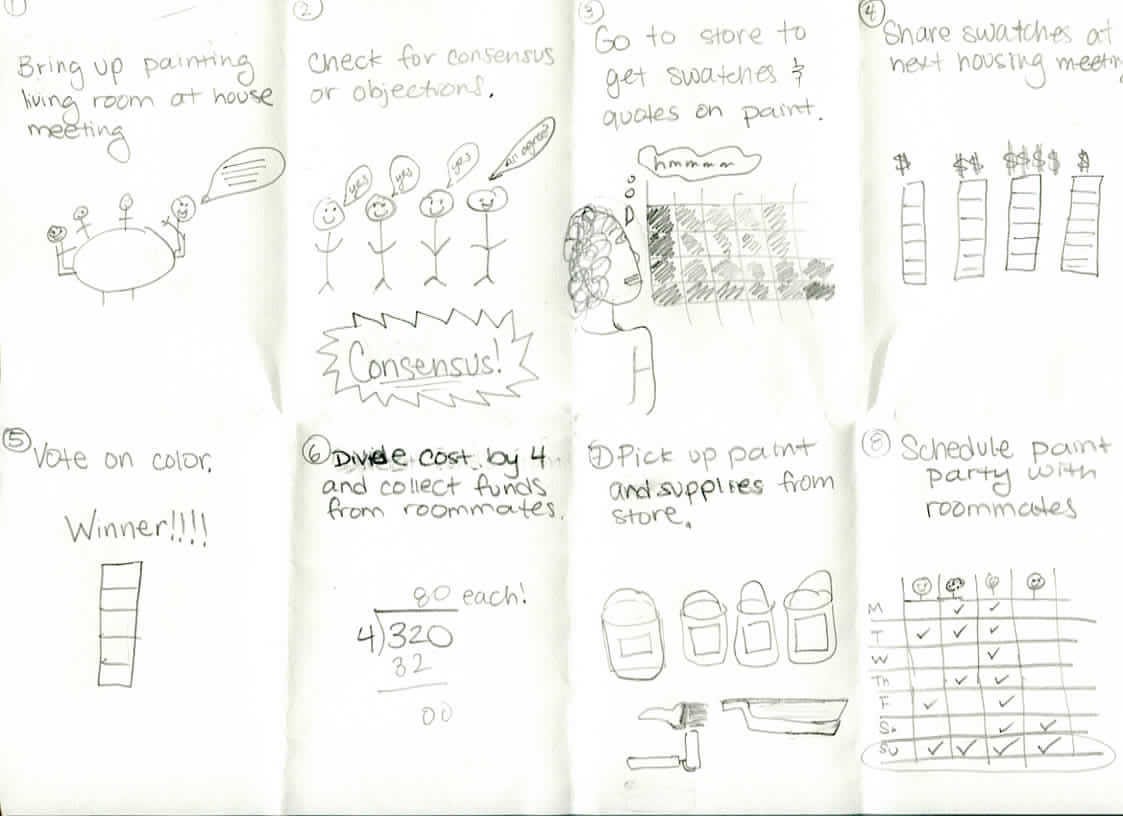 1
Bring up painting
living room at house
meeting
2
Check for consensus
or objections.
yes
yes
yes
Consensus!
3
Go to store to
get swatches &
quotes on paint.
hmmmm
4
Share swatches at
next housing meetin
$
$$
$$$$
$
5
Vote on color.
Winner!!!!
6
Divide cost by 4
and collect funds
from roommates.
80 each!
4)320
32
00
7
Pick up paint
and supplies from
store.
8
Schedule paint
party with
roommates
M
T
W
Th
F
Sa
Su